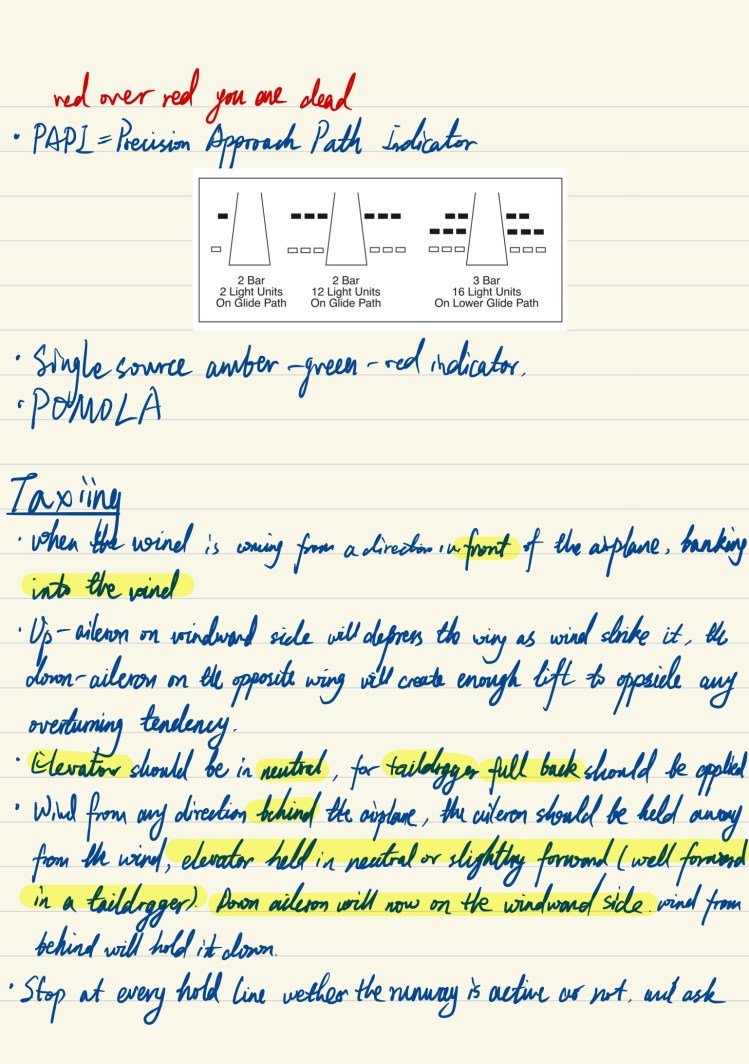 red over red you are dead
• PAPI = Precision Approach Path Indicator
2 Bar
2 Light Units
On Glide Path
2 Bar
12 Light Units
On Glide Path
3 Bar
16 Light Units
On Lower Glide Path
• Single source amber-green-red indicator.
• POMOLA
Taxiing
• when the wind is coming from a direction in front of the airplane, banking
into the wind
• Up-aileron on windward side will depress the wing as wind strike it, the
down-aileron on the opposite wing will create enough lift to oppside any
overturning tendency.
• Elevator should be in neutral, for taildragger full back should be applied
• Wind from any direction behind the airplane, the aileron should be held away
from the wind, elevator held in neutral or slightly forward (well forward
in a taildragger). Down aileron will now on the windward side. wind from
behind will hold it down.
• Stop at every hold line wether the runway is active or not, and ask